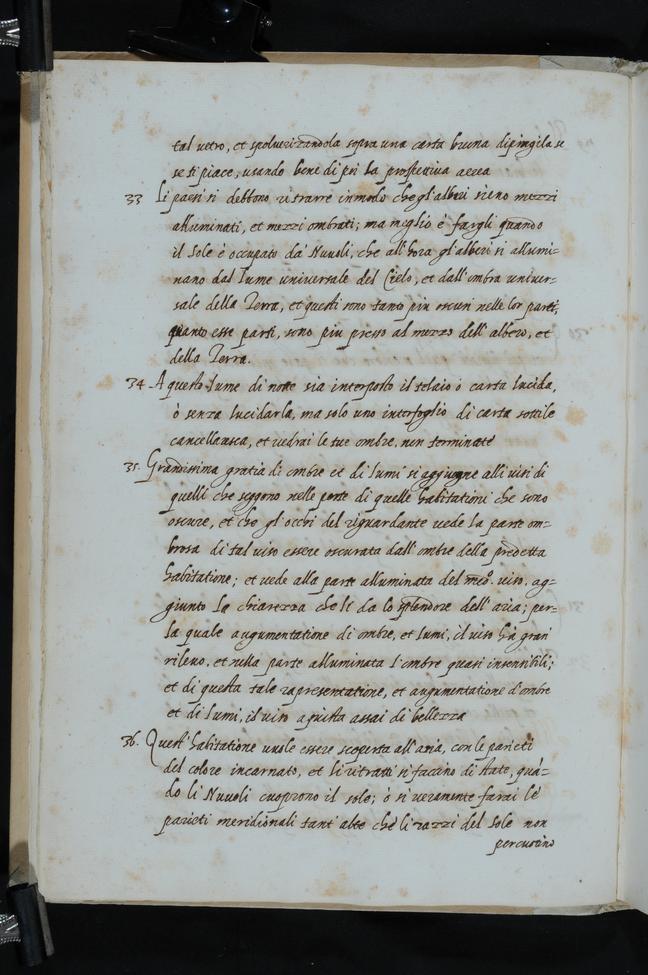 tal vetro, et spolverizandola sopra una carta buona dipingila se
se ti piace, usando bene di poi la prospettiva aerea
33 Li paesi si debbono ritrarre in modo che gl'alberi sieno mezzi
alluminati, et mezzi ombrati; ma meglio è fargli quando
il Sole è occupato da' Nuvoli, che all'hora gl'alberi si allumi-
nano dal lume universale del Cielo, et dall'ombra univer-
sale della Terra, et questi sono tanto piu oscuri nelle lor parti,
quanto esse parti, sono piu presso al mezzo dell'albero, et
della Terra.
34 A questo lume di notte sia interposto il telaio ò carta lucida,
ò senza lucidarla, ma solo uno interfoglio di carta sottile
cancellaresca, et vedrai le tue ombre, non terminate
35. Grandissima gratia di ombre et di lumi si aggiugne alli visi di
quelli che seggono nelle porte di quelle habitationi che sono
oscure, et che gl'occhi del riguardante vede la parte om-
brosa di tal viso essere oscurata dall'ombre della predetta
habitatione; et vede alla parte alluminata del med.º viso, ag-
giunto la chiarezza che le da lo splendore dell'aria; per-
la quale augumentatione di ombre, et lumi, il viso hà gran
rilevo, et nella parte alluminata l'ombre quasi insensibili;
et di questa tale rapresentatione, et augumentatione d'ombre
et di lumi, il viso aquista assai di bellezza
36. Quest'habitatione vuole essere scoperta all'aria, con le parieti
del colore incarnato, et li ritratti si faccino di state, quã-
do li Nuvoli cuoprono il sole; ò si veramente farai le
parieti meridionali tant'alte che li razzi del Sole non
percuotino